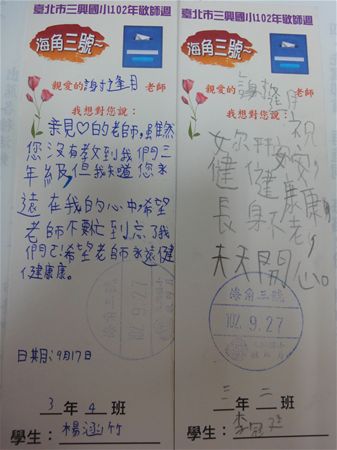 臺北市三興國小102年敬師週
海角三號~
親愛的 老師
我想對您說:
親愛♡的老師,雖然
您沒有教到我們三
年級,但我知道您永
遠在我的心中,希望
老師不要忙到忘了我
們ㄛ!希望老師永遠健
健康康。
海角三號
102.9.27
日期:9月17日
3年4班
學生:楊涵竹
臺北市三興國小102年敬師週
海角三號~
親愛的 老師
我想對您說:
祝
健健康康
長身不老,
天天開心。
海角三號
102.9.27
三年二班
學生:李